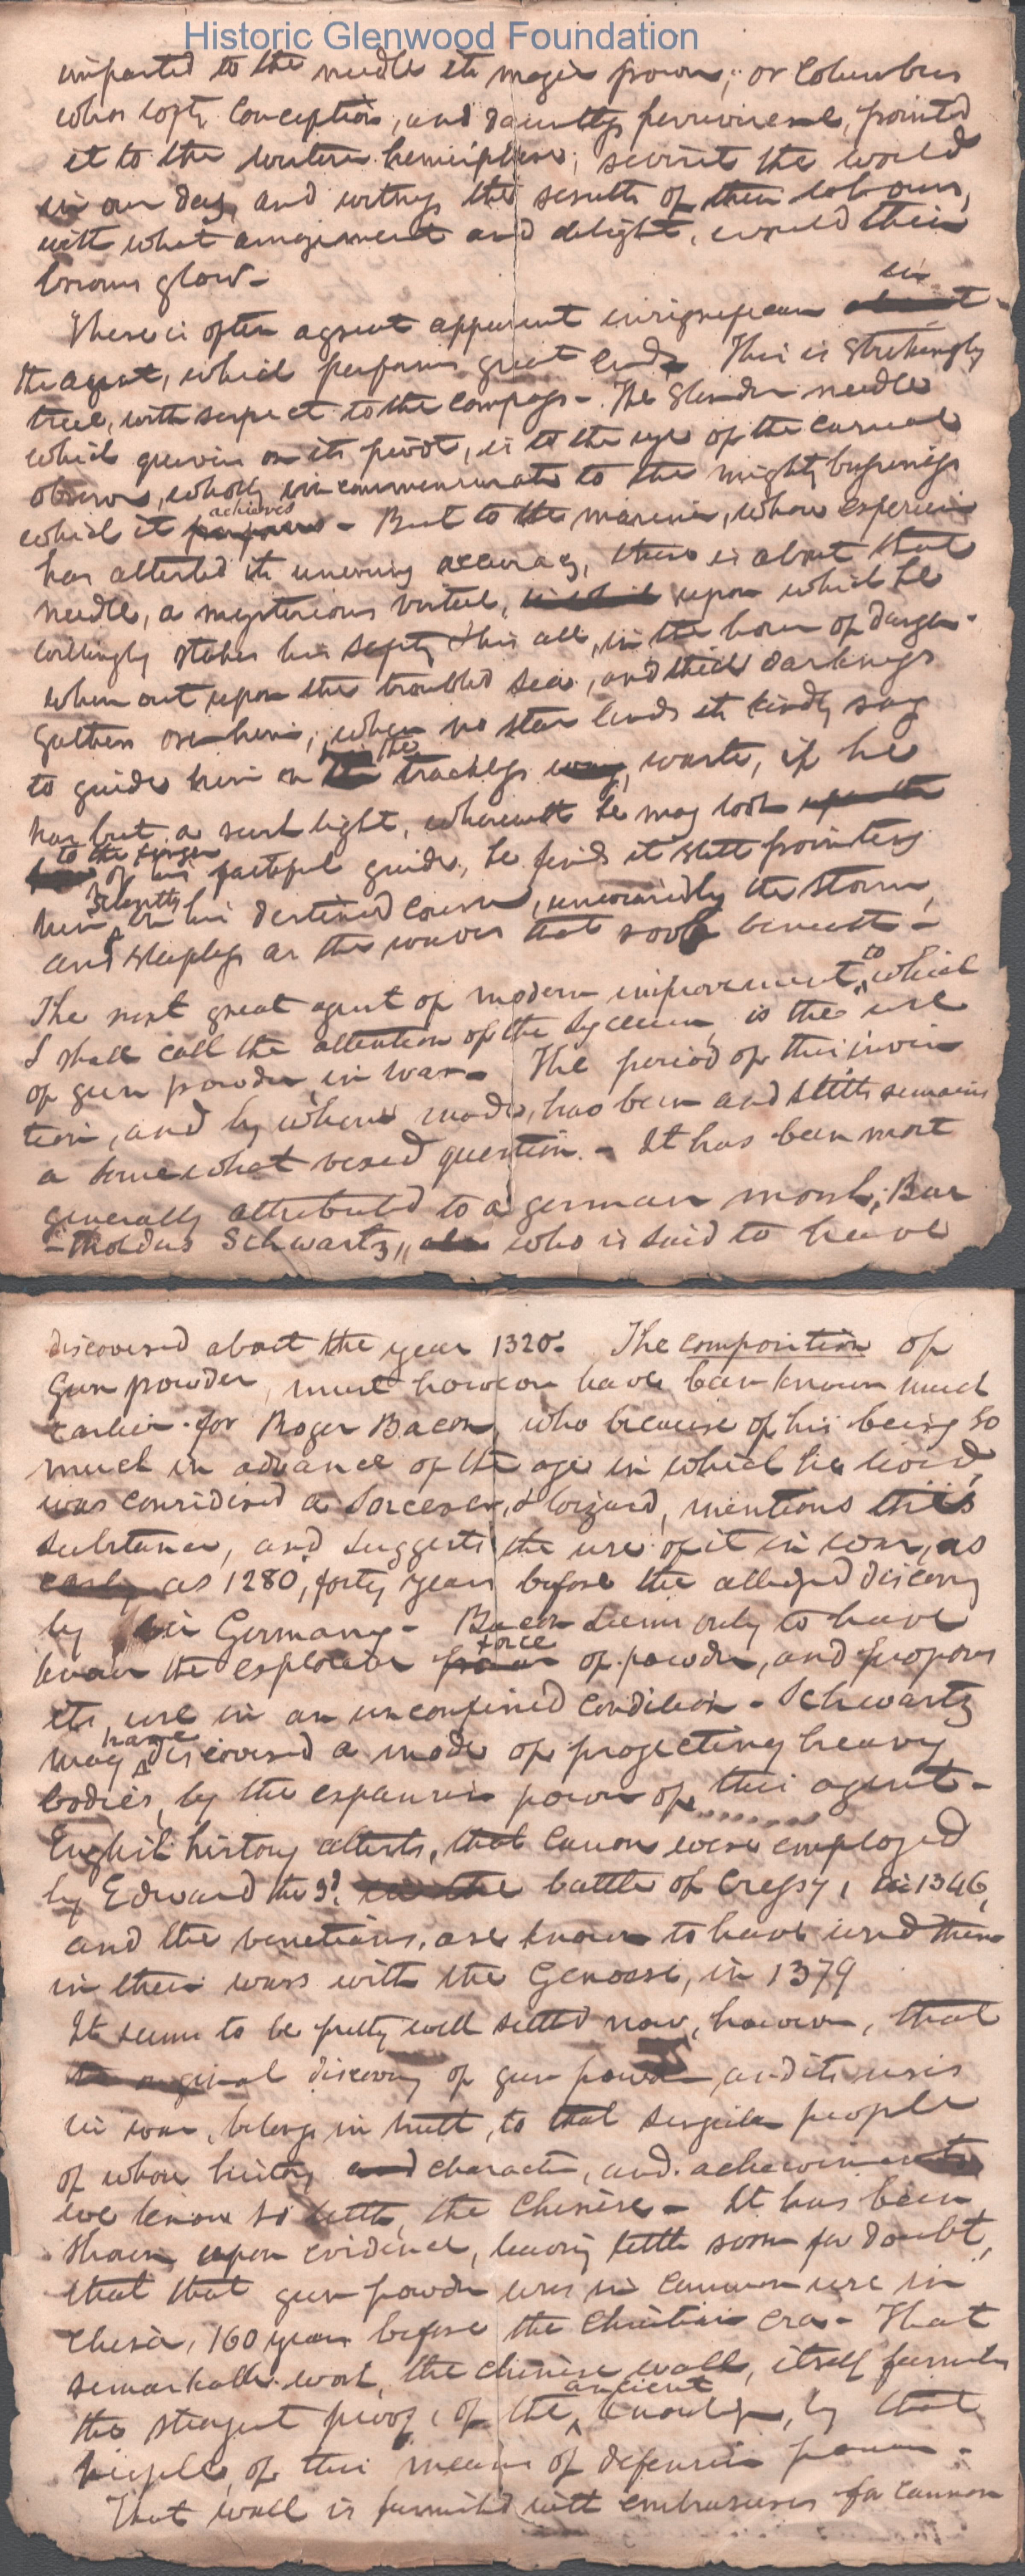 Historic Glenwood Foundation
imparted to the needle its magic power, or Columbus
whos lofty conception, and dauntless perseverence, pointed
it to the western hemisphere; revisit the world
in our day, and witness the results of their labours,
with what amazement and delight, would their
bosoms glow -
There is often a great apparent insignificance in
the agent, which performs great ends. This is strikingly
true, with respect to the compass - The slender needle
which quivers on its pivot, is to the eye of the casual
observer, wholly incommensurate to the mighty business
which it achieves - But to the mariner, whose experience
has attested its unerring accuracy, there is about that
needle, a mysterious virtue, upon which he
willingly stakes his safety & his all, in the hour of danger -
when out upon the troubled sea, and thick darkness
gathers over him, when no star lends its kindly ray
to guide him on the trackless waste, if he
has but a rush light, wherewith he may look
to the finger of his faithful guide, he finds it still pointing
him silently on his destined course, unwearied by the storm,
and sleepless as the waves that roll beneath -
The next great agent of modern improvement, to which
I shall call the attention of the Lyceum, is the use
of gun powder in war - The period of this inven
tion, and by whom made, has been and still remains
a somewhat vexed question. - It has been most
generally attributed to a german monk, Bar
- tholdus Schwartz, who is said to have
discovered about the year 1320. The composition of
Gun powder, must however have been known much
earlier - for Roger Bacon, who because of his being so
much in advance of the age in which he lived,
was considered a sorcerer, & wizard, mentions this
substance, and suggests the use of it in war, as
early as 1280, forty years before the alledged discovery
by in Germany - Bacon seems only to have
known the explosive force of powder, and proposes
its use in an unconfined condition - Schwartz
may have discovered a mode of projecting heavy
bodies, by the expansive power of this agent -
English history attests, that canon were employed
by Edward the 3d. battle of Cressy, in 1346,
and the venetians, are known to have used them
in their wars with the Genoese, in 1379
It seems to be pretty well settled now, however, that
the original discovery of gun powder and its uses
in war, belongs in truth, to that singular people
of whose history and character, and achievements
we know so little, the Chinese - It has been
shown upon evidence, leaving little room for doubt,
that that gun powder was in common use in
China, 160 years before the Christian era - That
remarkable work, the chinese wall, itself furnishes
the strongest proof, of the ancient knowledge, by that
people, of this means of defensive power -
That wall is furnished with embrasures for cannon